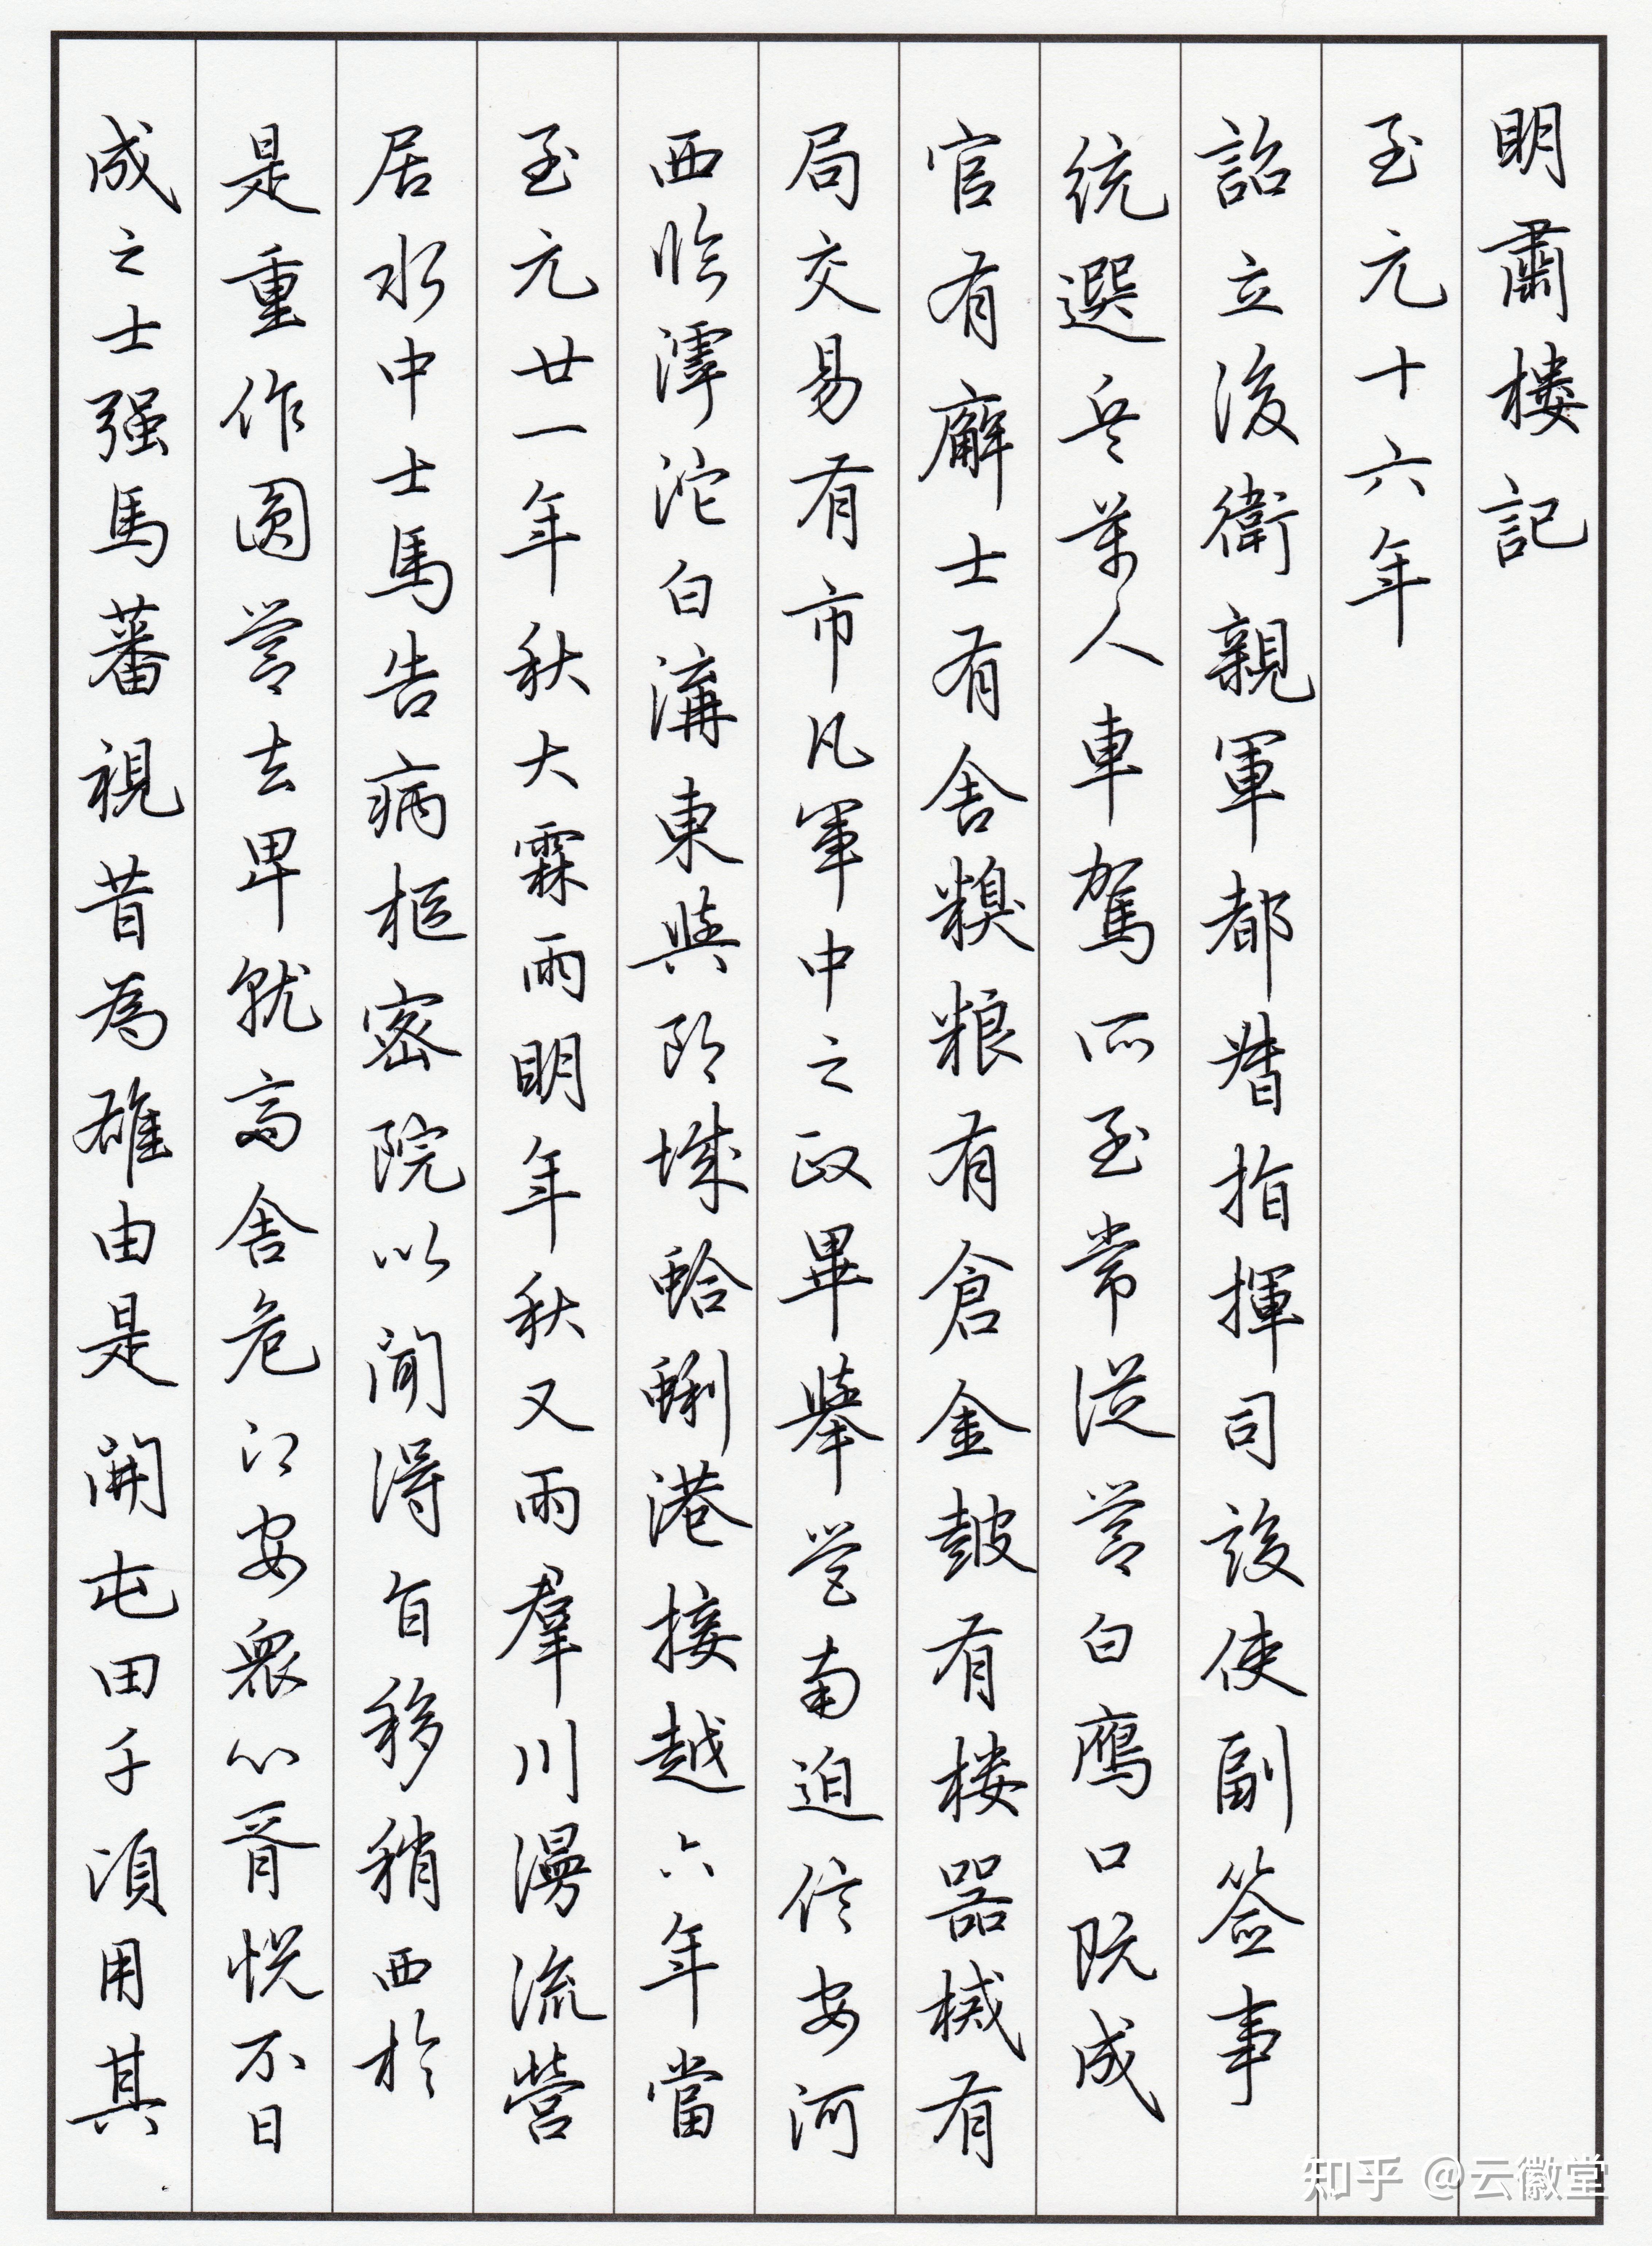 明肅樓記
至元十六年
詔立後衛親軍都督指揮司設使副簽事
統選兵萬人車駕所至常從營白鴈口既成
官有廨士有舍糗粮有倉金皷有楼器械有
局交易有市凡軍中之政畢舉營南迫信安河
西临滹沱白溝東與郎城蛤蜊港接越六年當
至元廿一年秋大霖雨明年秋又雨羣川漫流營
居水中士馬告病枢密院以闻得旨移稍西於
是重作圆营去卑就高舍危江安衆心胥悦不日
成之士强馬蕃視昔為雄由是開屯田千湏用其
知乎 @云徽堂